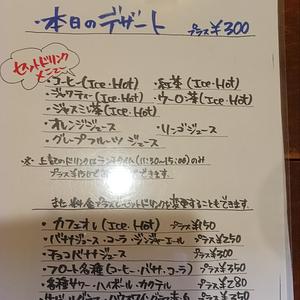 ・本日のデザート プラス¥300
セットドリンクメニュー
・コーヒー(Ice・Hot) ・紅茶(Ice・Hot)
・ジャスミン茶(Ice・Hot)
・オレンジジュース ・リンゴジュース
・グレープフルーツジュース
※上記のドリンクはランチタイム(11:30~15:00)のみ
プラス¥150で できます。
また、料金プラスしてセットドリンクに変更することもできます。
・カフェオレ(Ice・Hot) プラス¥150
・バナナジュース・コーラ・ジンジャーエール プラス¥250
・チョコバナナジュース プラス¥300
・フロート各種(コーヒー・バナナ・コーラ) プラス¥350
・各種サワー・ハイボール・カクテル プラス¥280